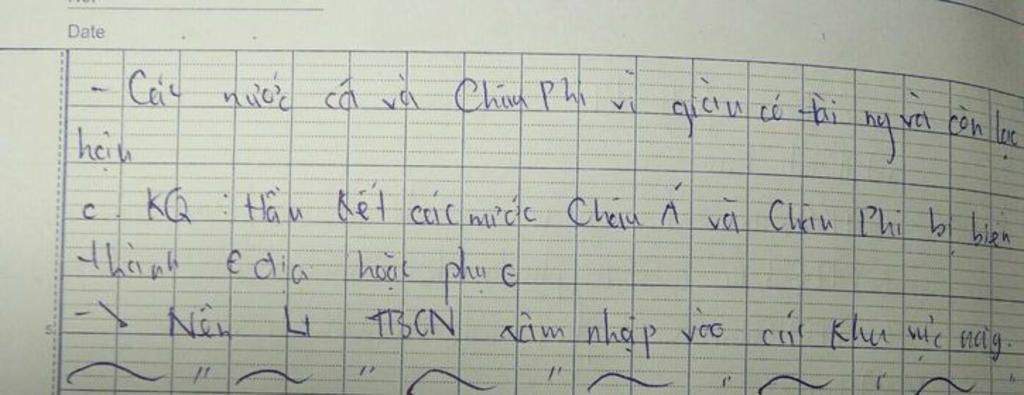 Date
- Các nước cá và Châu Phi vì giàu có tài ng và còn lạc
hậu
c. KQ : Hầu hết các nước Châu Á và Châu Phi bị biến
thành € địa hoặc phụ €
-> Nền TBCN xâm nhập vào các khu vực này.